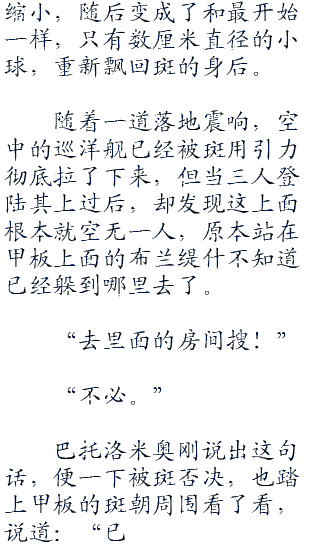 缩小，随后变成了和最开始
一样，只有数厘米直径的小
球，重新飘回斑的身后。
随着一道落地震响，空
中的巡洋舰已经被斑用引力
彻底拉了下来，但当三人登
陆其上过后，却发现这上面
根本就空无一人，原本站在
甲板上面的布兰缇什不知道
已经躲到哪里去了。
“去里面的房间搜！”
“不必。”
巴托洛米奥刚说出这句
话，便一下被斑否决，也踏
上甲板的斑朝周围看了看，
说道：“已